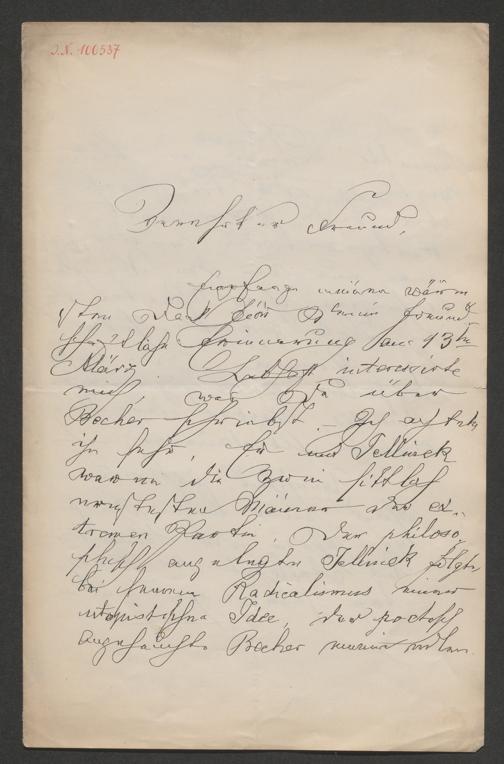 J.N. 100537
Verehrter Freund,
Empfange meinen wärm
sten Dank für Deine freund
schaftliche Erinnerung am 13ten
März. Lebhaft interessirte
mich, was Du über
Becher schriebst. – Ich achtete
ihn sehr. Er und Jellinek
waren die zwei sittlich
ernstesten Männer der ex-
tremen Partei. Der philoso-
phisch angelegte Jellinek folgte
bei seinem Radicalismus einer
utopistischen Idee, der poetisch
angehauchte Becher einem edlen